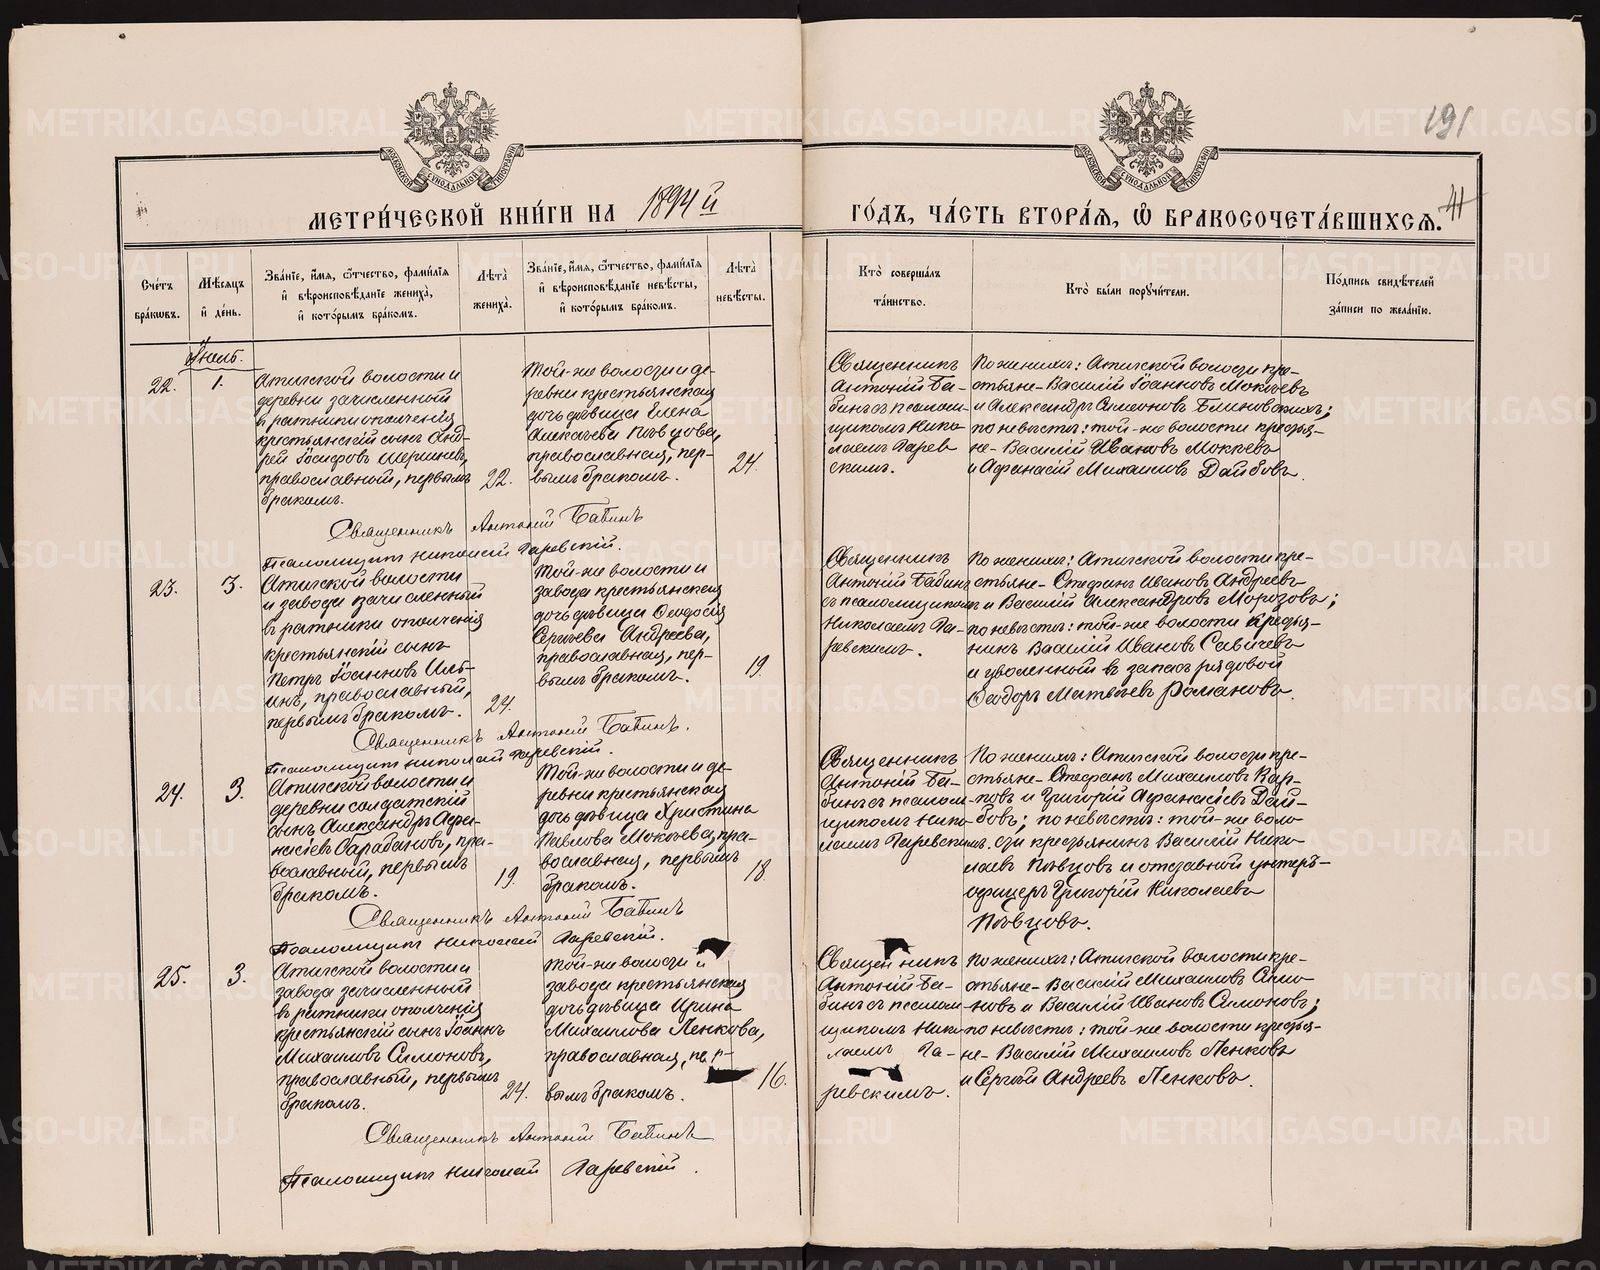 191
МЕТРИ́ЧЕСКОЙ КНИ́ГИ НА 1894 й
ГО́ДЪ, ЧА́СТЬ ВТОРА́Я, Ѡ БРАКОСОЧЕТА́ВШИХСЯ.
41
Сче́тъ
бра́кѡвъ.
Мѣ́сяцъ
и́ де́нь.
Зва́нїе, и́мя, ѻ́тчество, фами́лїя
и́ вѣроисповѣ́данїе жениха̀,
и́ кото́рымъ бра́комъ.
Лѣ́та
жениха̀.
Зва́нїе, и́мя, ѻ́тчество, фами́лїя
и́ вѣроисповѣ́данїе невѣ́сты,
и́ кото́рымъ бра́комъ.
Лѣ́та
невѣ́сты.
Кто̀ соверша́лъ
та́инство.
Кто̀ бы́ли порꙋчи́тели.
По́дпись свидѣ́телей
за́писи по жела́нїю.
Іюль.
22.
1.
Атигской волости и
деревни зачисленный
в ратники ополченія
крестьянскій сынъ Анд-
рей Іосифовъ
православный, первымъ
бракомъ.
22.
Той-же волости и де-
ревни крестьянская
дочь дѣвица Елена
Алексѣева Пѣвцова,
православная, пер-
вымъ бракомъ.
24.
Священникъ
Антоній Ба-
бинъ съ псалом-
щикомъ Нико-
лаемъ Гарев-
скимъ.
По женихѣ: Атигской волости кре-
стьяне- Василій Іоанновъ Мокѣевъ
и Александръ Симеоновъ Блиновскихъ;
по невѣстѣ: той-же волости крестья-
не- Василій Ивановъ Мокѣевъ
и Афанасій Михаиловъ Дайбовъ.
Священникъ Антоній Бабинъ
Псаломщикъ Николай Гаревскій.
23.
3.
Атигской волости
и завода зачисленный
въ ратники ополченія
крестьянскій сынъ
Петръ Іоанновъ Иль-
инъ, православный,
первымъ бракомъ.
24.
Той-же волости и
завода крестьянская
дочь дѣвица Ѳеодосія
Сергѣева Андреева,
православная, пер-
вымъ бракомъ.
19.
Священникъ
Антоній Бабинъ
съ псаломщикомъ
Николаемъ Га-
ревскимъ.
По женихѣ: Атигской волости кре-
стьяне- Стефанъ Ивановъ Андреевъ
и Василій Александровъ Морозовъ;
по невѣстѣ: той-же волости крестья-
нинъ Василій Ивановъ Савичевъ
и уволенный в запасъ рядовой
Ѳеодоръ Матвѣевъ Романовъ.
Священникъ Антоній Бабинъ.
Псаломщикъ Николай Гаревскій.
24.
3.
Атигской волости и
деревни солдатскій
сынъ Александръ Афа-
насіевъ Сарабановъ, пра-
вославный, первымъ
бракомъ.
19.
Той-же волости и де-
ревни крестьянская
дочь дѣвица Христина
Павлова Мокѣева, пра-
вославная, первымъ
бракомъ.
18.
Священникъ
Антоній Ба-
бинъ съ псалом-
щикомъ Нико-
лаемъ Гаревскимъ.
По женихѣ: Атигской волости кре-
стьяне- Стефанъ Михаиловъ Кар-
повъ и Григорій Афанасіевъ Дай-
бовъ; по невѣстѣ: той-же воло-
сти крестьянинъ Василій Нико-
лаевъ Пѣвцовъ и отставной унтеръ-
офицеръ Григорій Николаевъ
Пѣвцовъ.
Священникъ Антоній Бабинъ
Псаломщикъ Николай Гаревскій.
25.
3.
Атигской волости и
завода зачисленный
в ратники ополченія
крестьянскій сынъ Іоаннъ
Михаиловъ Симоновъ,
православный, первымъ
бракомъ.
24.
Той-же волости и
завода крестьянская
дочь дѣвица Ирина
Михаилова Пенкова,
православная, пер-
вымъ бракомъ.
16.
Священникъ
Антоній Ба-
бинъ съ псалом-
щикомъ Нико-
лаемъ Га-
ревскимъ.
По женихѣ: Атигской волости кре-
стьяне- Василій Михаиловъ Симо-
новъ и Василій Ивановъ Симоновъ;
по невѣстѣ: той-же волости крестья-
не- Василій Михаиловъ Пенковъ
и Сергѣй Андреевъ Пенковъ.
Священникъ Антоній Бабинъ
Псаломщикъ Николай Гаревскій.
METRIKI.GASO-URAL.RU